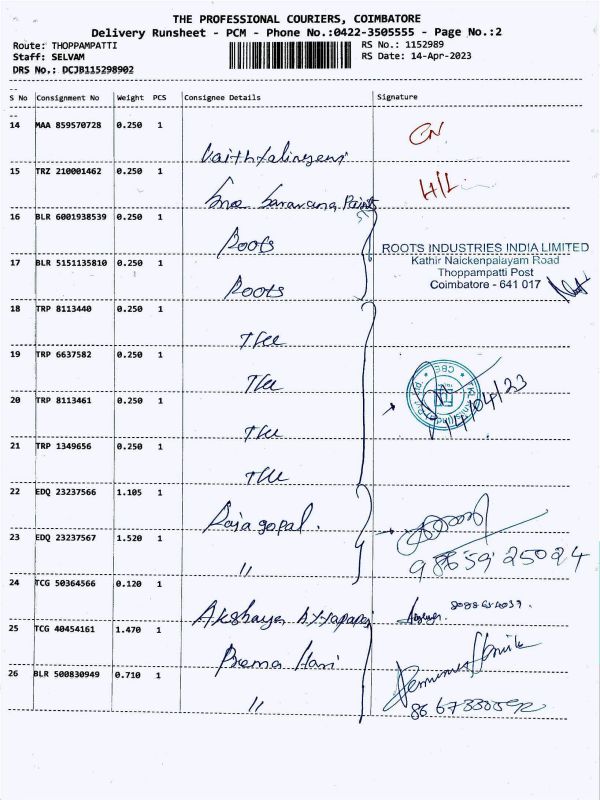 THE PROFESSIONAL COURIERS, COIMBATORE
Delivery Runsheet - PCM - Phone No.:0422-3505555 - Page No.:2
Route: THOPPAMPATTI RS No.: 1152989
Staff: SELVAM RS Date: 14-Apr-2023
DRS No.: DCJB115298902
S No Consignment No Weight PCS Consignee Details Signature
14 MAA 859570728 0.250 1
15 TRZ 210001462 0.250 1 H/L
Saravana Paints
16 BLR 6001938539 0.250 1
Roots
ROOTS INDUSTRIES INDIA LIMITED
Kathir Naickenpalayam Road
17 BLR 5151135810 0.250 1
Thoppampatti Post
Coimbatore - 641 017
Roots
18 TRP 8113440 0.250 1
19 TRP 6637582 0.250 1
CBE
20 TRP 8113461 0.250 1
14/04/23
21 TRP 1349656 0.250 1
22 EDQ 23237566 1.105 1
Rajagopal.
23 EDQ 23237567 1.520 1
98659 25024
"
24 TCG 50364566 0.120 1
Akshaya
25 TCG 40454161 1.470 1
Prema Hari
26 BLR 500830949 0.710 1
"